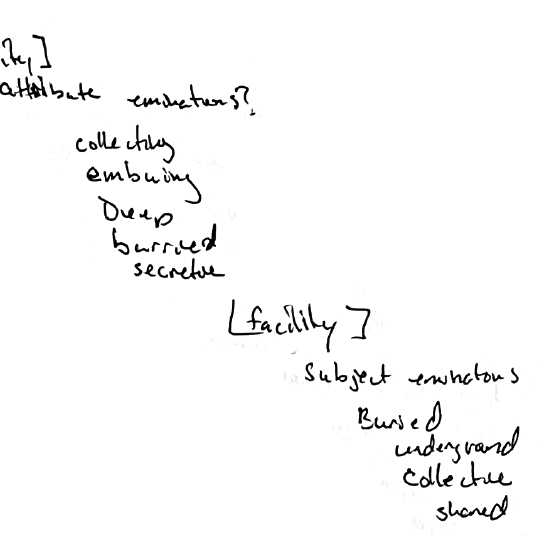 ity]
attribute eminations?
collecting
embuing
Deep
burried
secretive
[facility]
Subject eminations
Buried
underground
Collective
shared